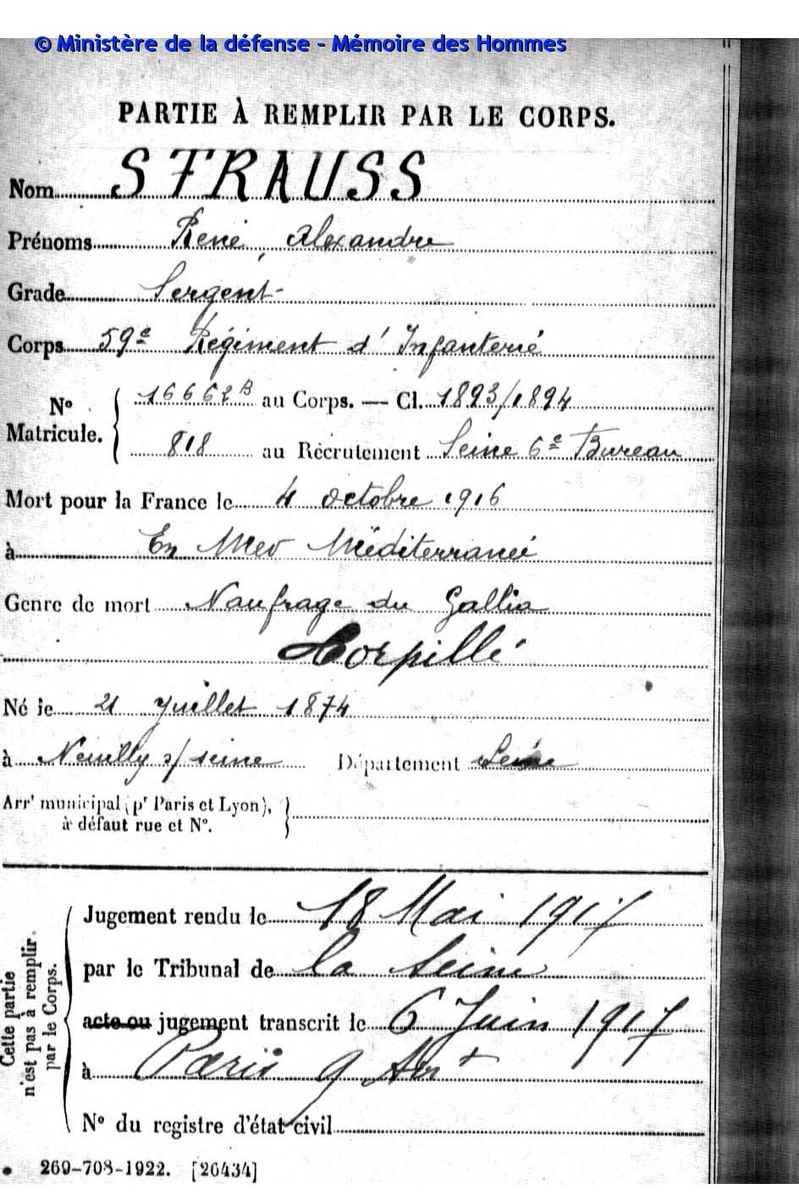 © Ministère de la défense - Mémoire des Hommes
PARTIE À REMPLIR PAR LE CORPS.
Nom STRAUSS
Prénoms René, Alexandre
Grade Sergent
Corps 59e Régiment d'Infanterie
N° Matricule. { 16662B au Corps. — Cl. 1893/1894
818 au Recrutement Seine 6e Bureau
Mort pour la France le 4 octobre 1916
à En Mer Méditerranée
Genre de mort Naufrage du Gallia
Torpillé
Né le 21 Juillet 1874
à Neuilly s/ seine Département Seine
Arrt municipal (pr Paris et Lyon), à défaut rue et N°. }
Cette partie n'est pas à remplir par le Corps.
Jugement rendu le 18 Mai 1917
par le Tribunal de la Seine
acte ou jugement transcrit le 6 Juin 1917
à Paris 9 Arrt
N° du registre d'état civil
269-708-1922. [26434]